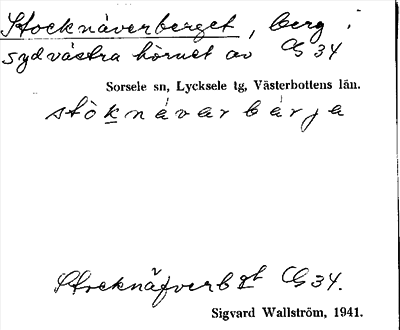 Stocknäverberget, berg i
sydvästra hörnet av G 34
Sorsele sn, Lycksele tg, Västerbottens län.
stòknávarbárja
Stocknäfverbgt G 34.
Sigvard Wallström, 1941.